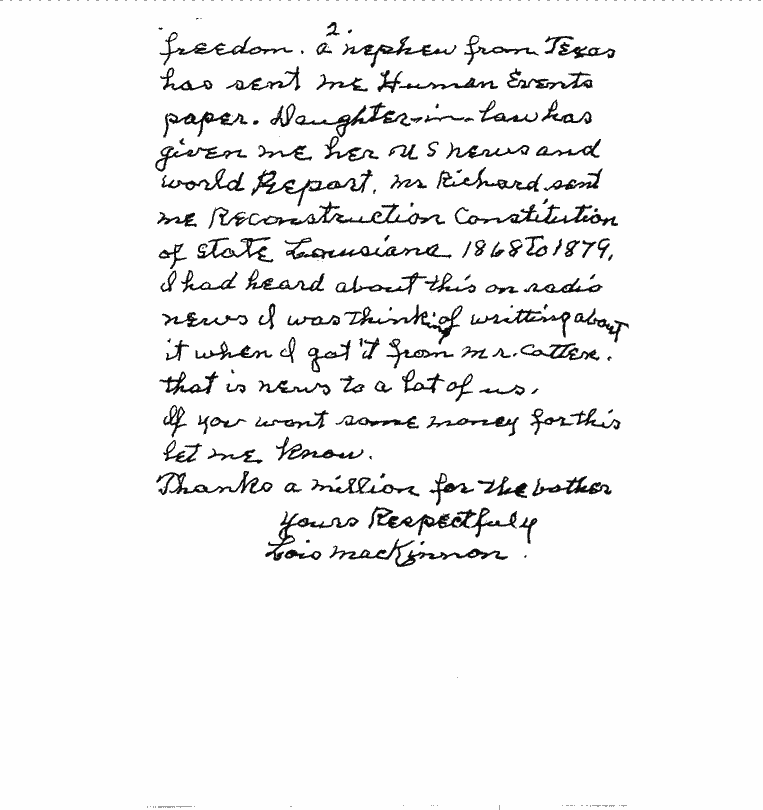 2.
freedom. a nephew from Texas
has sent me Human Events
paper. Daughter-in-law has
given me her U S news and
world Report. Mr Richard sent
me Reconstruction Constitution
of state Louisiana 1868 To 1879,
I had heard about this on radio
news I was thinking of writting about
it when I got it from mr. Cotten.
that is news to a lot of us.
If you want some money for this
let me know.
Thanks a million for the bother
yours Respectfuly
Lois macKinnon.